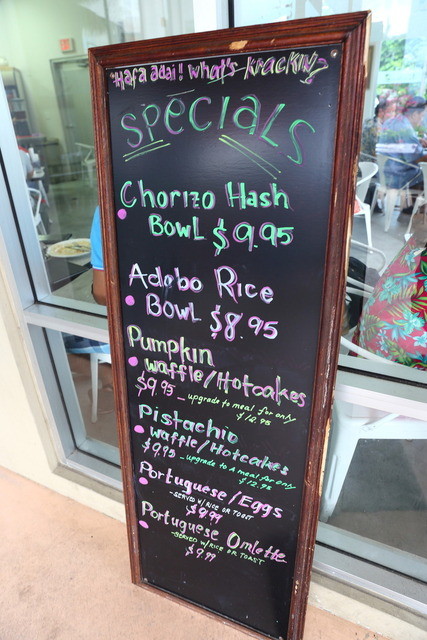 Hafa adai! What's kracking
Specials
Chorizo Hash
Bowl $9.95
Adobo Rice
Bowl $8.95
Pumpkin
waffle/Hotcakes
$9.95 - upgrade to meal for only
$12.95
Pistachio
waffle/Hotcakes
$9.95 - upgrade to a meal for only
$12.95
Portuguese/Eggs
-SERVED W/RICE OR TOAST
$9.99
Portuguese Omlette
-SERVED W/RICE OR TOAST
$9.99